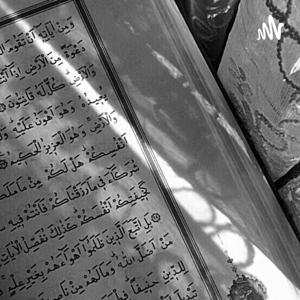 وَمِنْ ءَايَٰتِهِۦٓ أَن تَقُومَ
دَعْوَةً مِّنَ ٱلْأَرْضِ إِذَآ أَنتُمْ
وَٱلْأَرْضِ كُلٌّ لَّهُۥ قَٰنِتُونَ
يُعِيدُهُۥ وَهُوَ أَهْوَنُ عَلَيْهِ
وَٱلْأَرْضِ وَهُوَ ٱلْعَزِيزُ ٱلْحَكِيمُ
أَنفُسِكُمْ هَل لَّكُم مِّن مَّا مَلَكَتْ
شُرَكَآءَ فِى مَا رَزَقْنَٰكُمْ فَأَنتُمْ فِيهِ
كَخِيفَتِكُمْ أَنفُسَكُمْ كَذَٰلِكَ نُفَصِّلُ ٱلْءَايَٰتِ
بَلِ ٱتَّبَعَ ٱلَّذِينَ ظَلَمُوٓا۟ أَهْوَآءَهُم بِغَيْرِ عِلْمٍ
مَنْ أَضَلَّ ٱللَّهُ وَمَا لَهُم مِّن
لِلدِّينِ حَنِيفًا